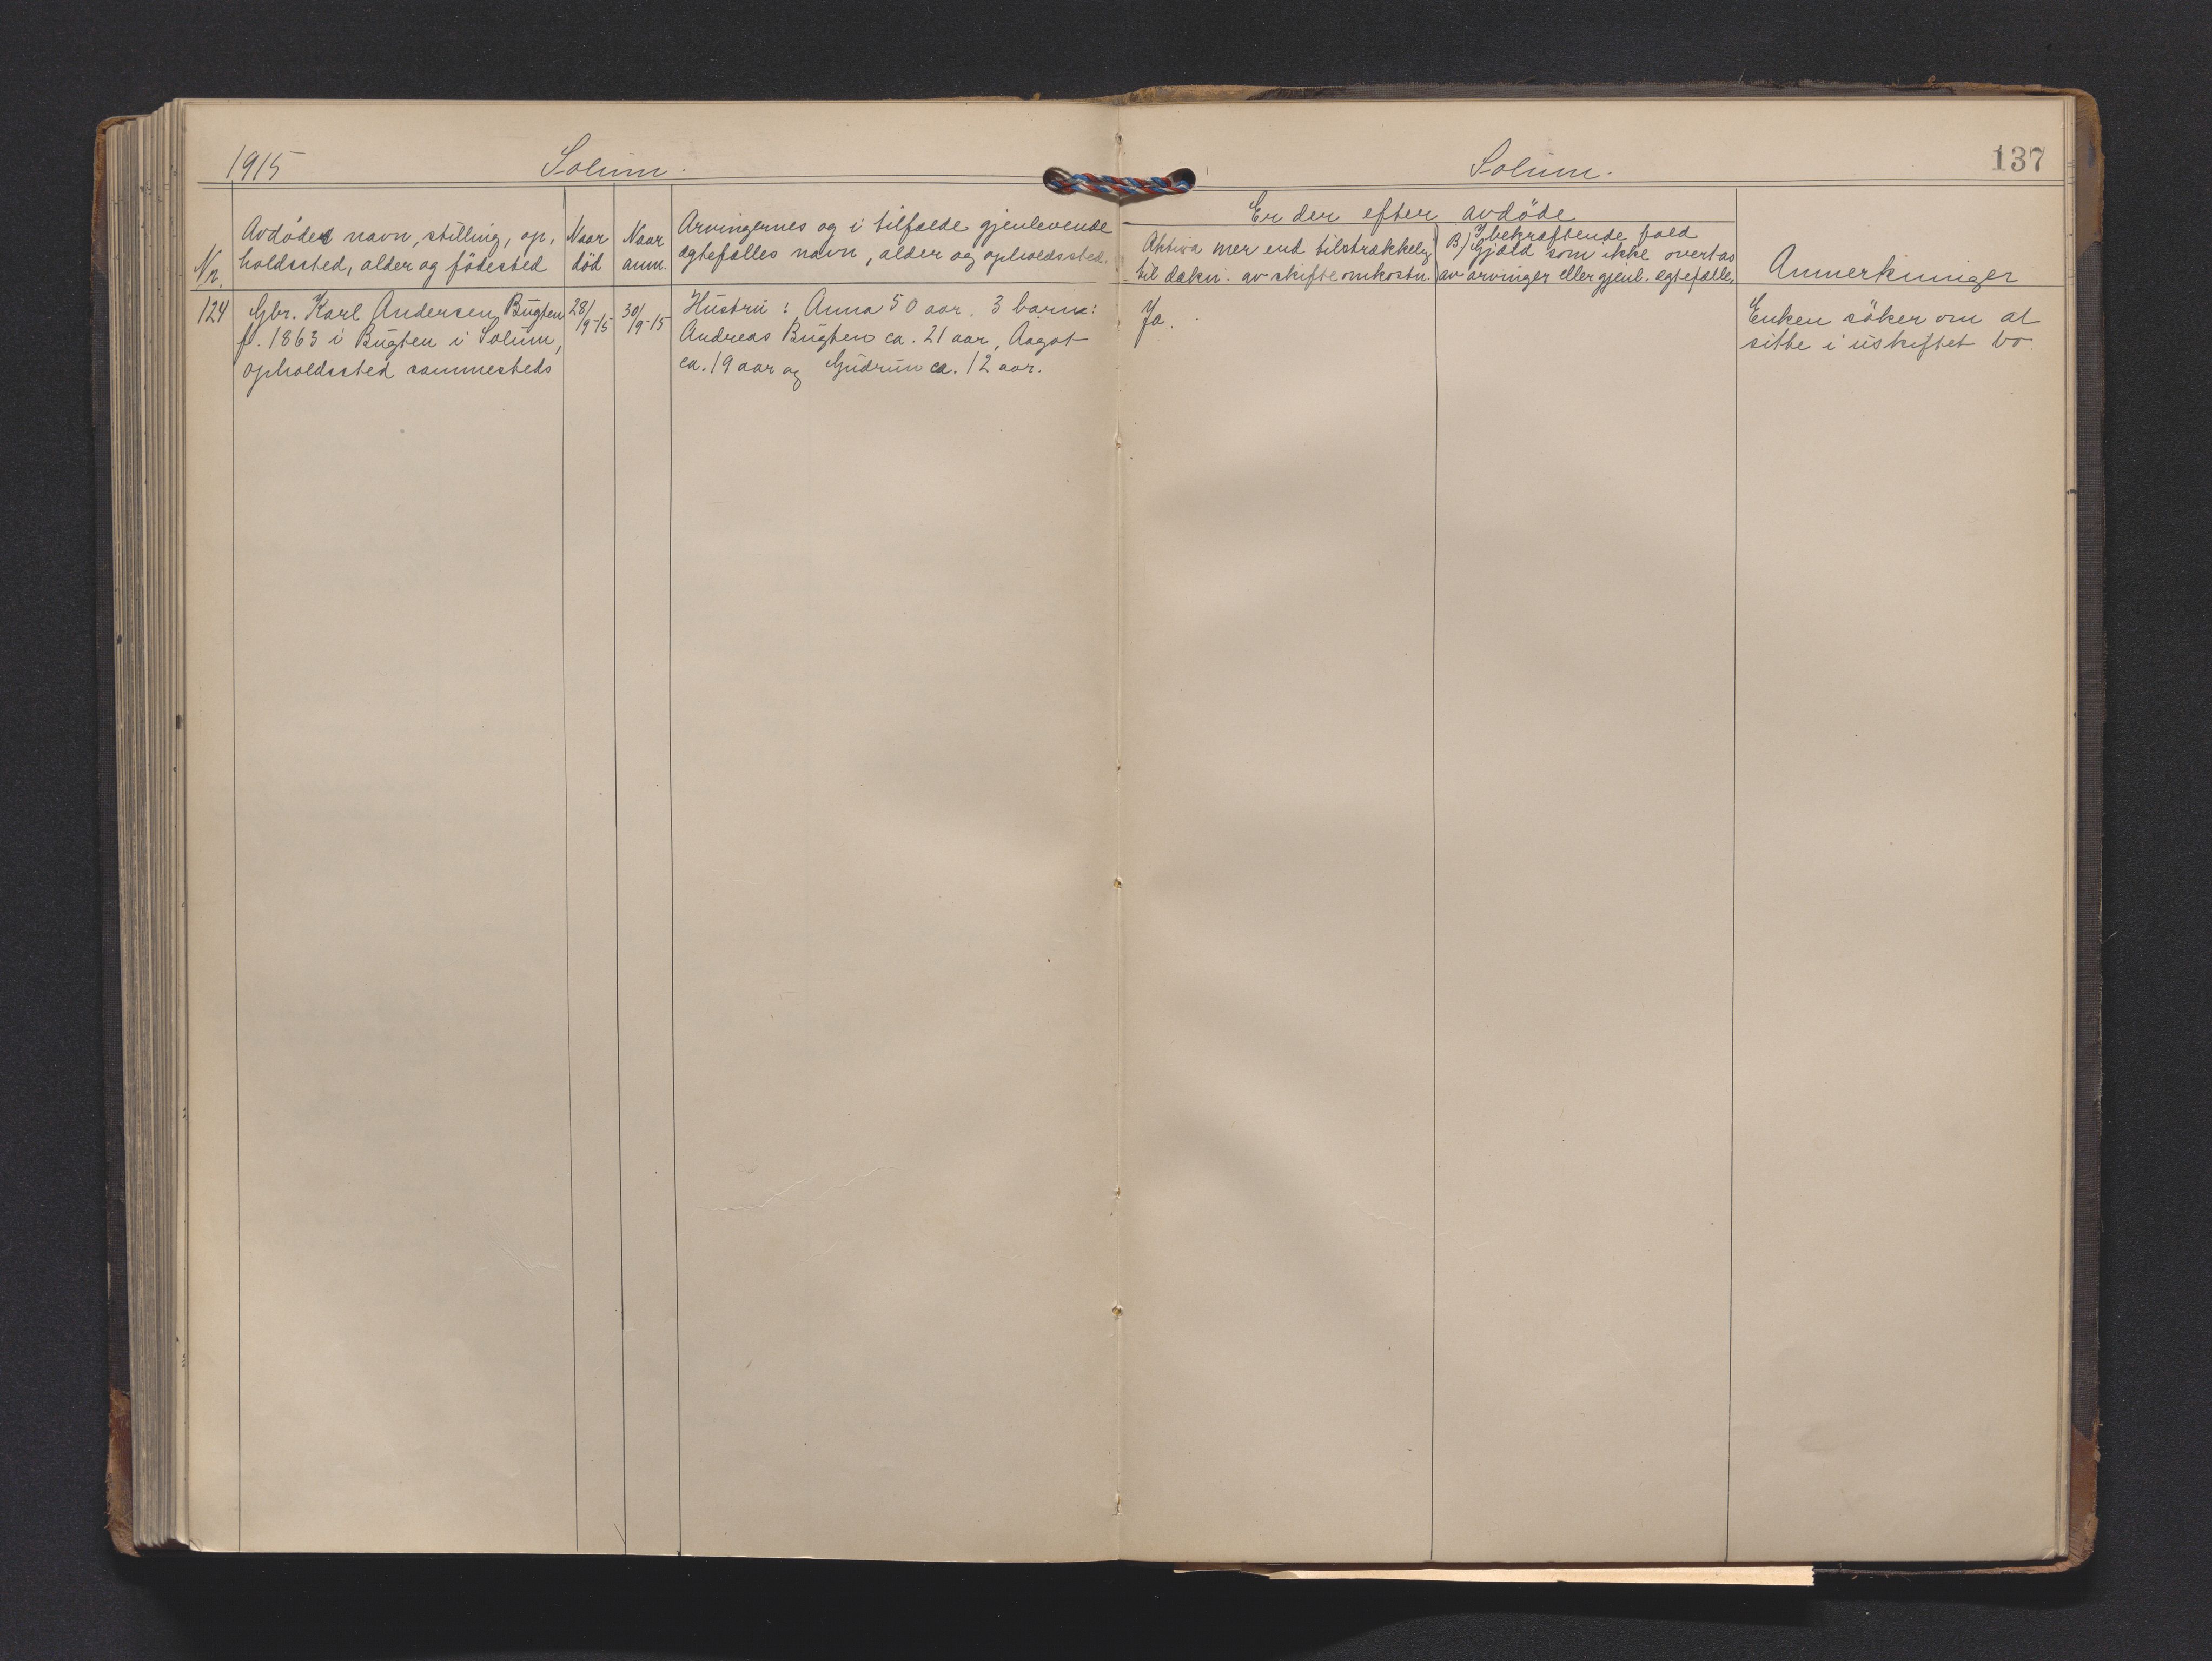 1915 Solum.
Solum. 137
Nr.
Avdødes navn, stilling, op-
holdssted, alder og fødested
Naar
død
Naar
anm.
Arvingernes og i tilfælde gjenlevende
egtefælles navn, alder og opholdssted.
Er der efter avdøde
Aktiva mer end tilstrækkelig
til dækn. av skifteomkostn.
I bekræftende fald
B.) Gjæld som ikke overtas
av arvinger eller gjenl. egtefælle.
Anmerkninger
124
Gbr. Karl Andersen Bugten
f. 1863 i Bugten i Solum,
opholdssted sammesteds
28/9-15
30/9-15
Hustru: Anna 50 aar. 3 barn:
Andreas Bugten ca. 21 aar, Aagot
ca. 19 aar og Gudrun ca. 12 aar.
Ja.
Enken søker om at
sitte i uskiftet bo.